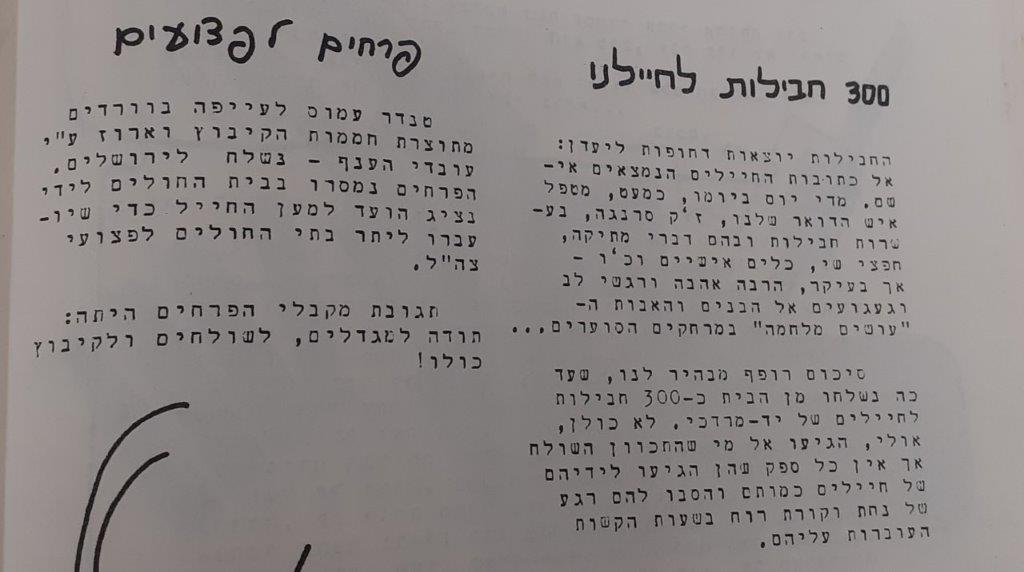 300 חבילות לחיילנו
החבילות יוצאות דחופות ליעדן:
אל כתובות החיילים הנמצאים אי-
שם. מדי יום ביומו, כמעט, מטפל
איש הדואר שלנו, ז'ק סרנגה, בע-
שרות חבילות ובהם דברי מתיקה,
חפצי שי, כלים אישיים וכ'ו -
אך בעיקר, הרבה אהבה ורגשי לב
וגעגועים אל הבנים והאבות ה-
"עושים מלחמה" במרחקים הסוערים...
סיכום רופף מבהיר לנו, שעד
כה נשלחו מן הבית כ-300 חבילות
לחיילים של יד-מרדכי. לא כולן,
אולי, הגיעו אל מי שהתכוון השולח
אך אין כל ספק שהן הגיעו לידיהם
של חיילים כמותם והסבו להם רגע
של נחת וקורת רוח בשעות הקשות
העוברות עליהם.
פרחים לפצועים
טנדר עמוס לעייפה בוורדים
מתוצרת חממות הקיבוץ וארוז ע"י
עובדי הענף - נשלח לירושלים.
הפרחים נמסרו בבית החולים לידי
נציג הועד למען החייל כדי שיו-
עברו ליתר בתי החולים לפצועי
צה"ל.
תגובת מקבלי הפרחים היתה:
תודה למגדלים, לשולחים ולקיבוץ
כולו!